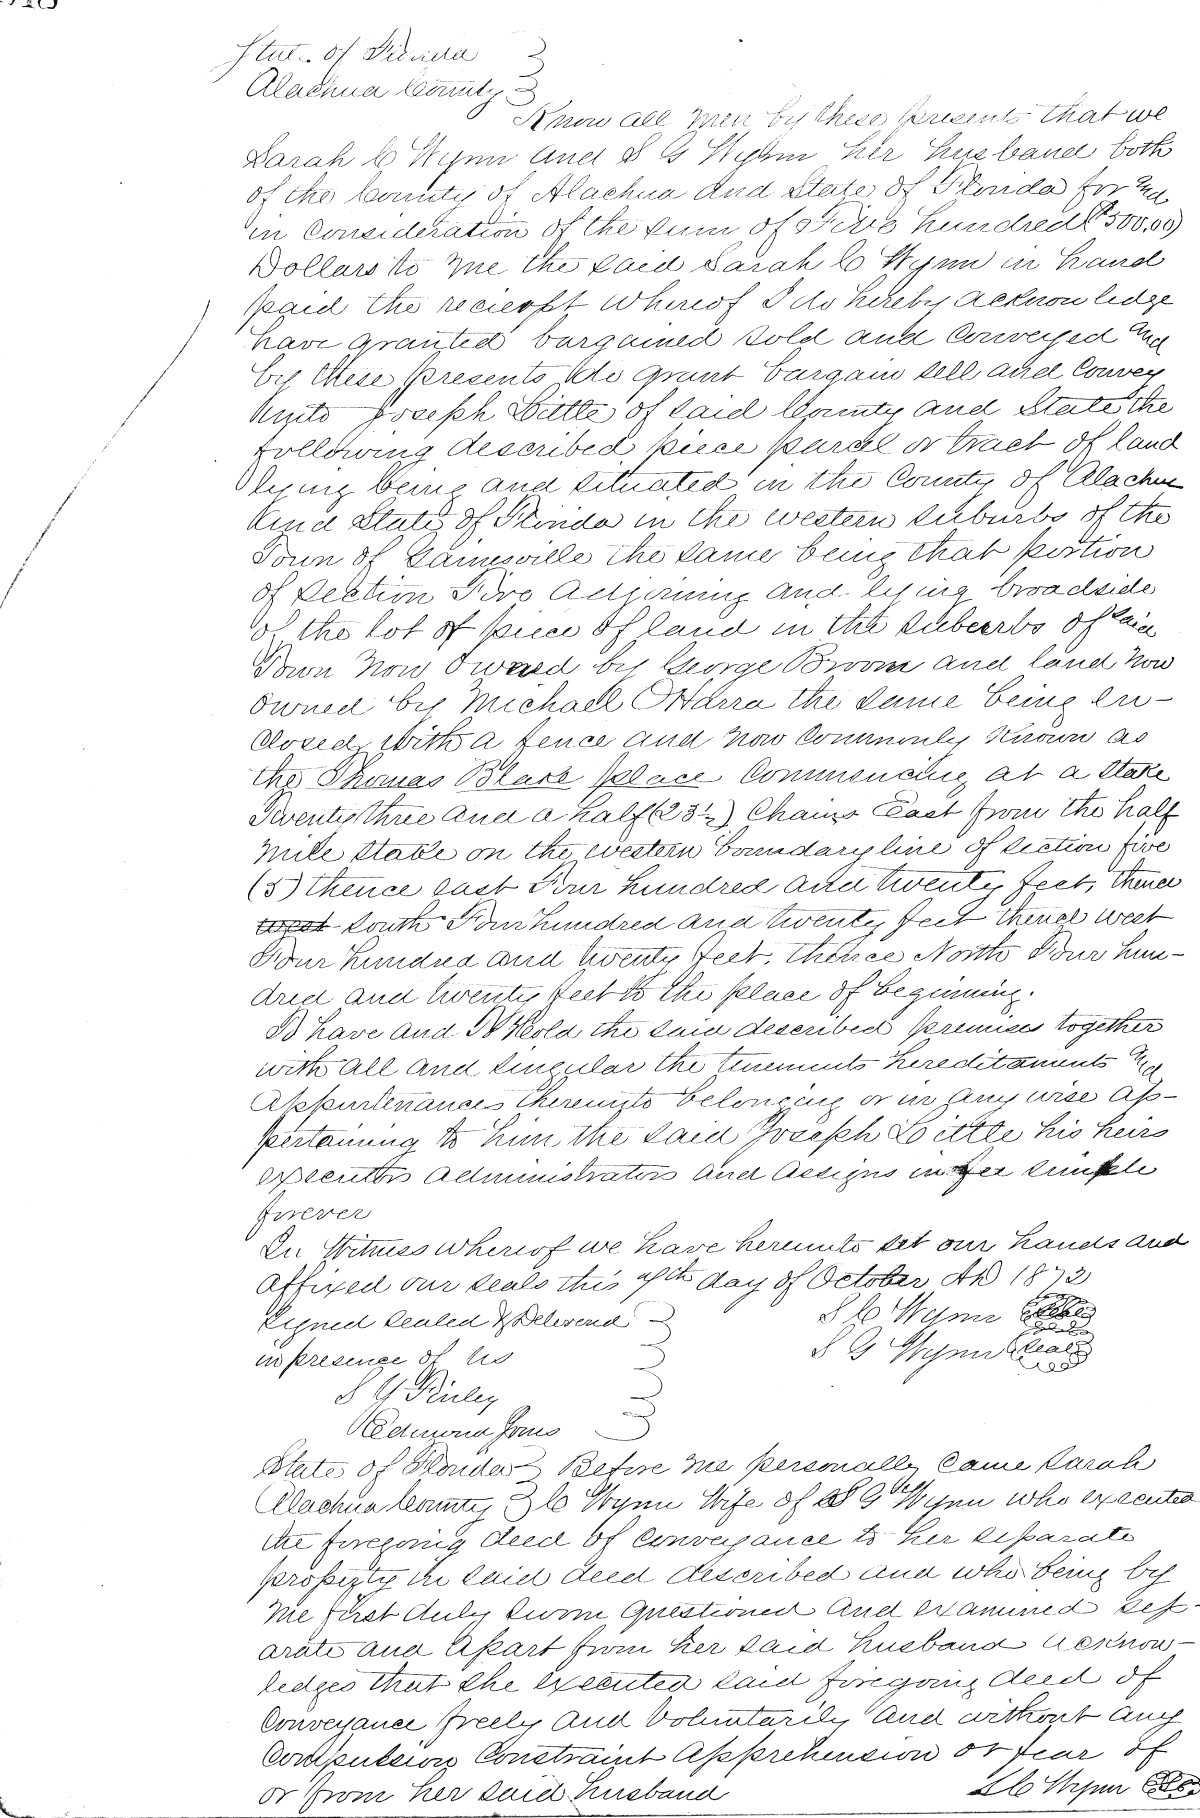 State of Florida }
Alachua County }
Know all men by these presents that we
Sarah C Wynn and S G Wynn her husband both
of the County of Alachua and State of Florida for and
in consideration of the sum of Five hundred ($500.00)
Dollars to me the said Sarah C Wynn in hand
paid the recieopt whereof I do hereby acknowledge
have granted bargained sold and conveyed and
by these presents do grant bargain sell and convey
unto Joseph Little of said County and State the
following described piece parcel or tract of land
lying being and situated in the County of Alachua
and State of Florida in the western suburbs of the
Town of Gainesville the same being that portion
of section Five adjoining and lying broadside
of the lot of piece of land in the suberbs of said
Town now owned by George Broom and land now
owned by Michael OHarra the same being en-
closed with a fence and now commonly known as
the Thomas Blake place commencing at a stake
Twenty three and a half (23½) Chains East from the half
mile stake on the western boundary line of section five
(5) thence east Four hundred and twenty feet, thence
west south Four hundred and twenty feet thence west
Four hundred and twenty feet. thence North Four hun-
dred and twenty feet to the place of beginning.
To have and To Hold the said described premises together
with all and singular the tenements hereditaments and
appurtenances thereunto belonging or in any wise ap-
pertaining to him the said Joseph Little his heirs
executors administrators and assigns in fee simple
forever
In Witness whereof we have hereunto set our hands and
affixed our seals this 7th day of October AD 1872
Signed sealed & Delivered } S C Wynn (Seal)
in presence of us } S G Wynn (Seal)
S Y Finley }
Edmond Jones }
State of Florida } Before me personally came Sarah
Alachua County } C Wynn Wife of S G Wynn who executed
the foregoing deed of conveyance to her separate
property in said deed described and who being by
me first duly sworn questioned and examined sep-
arate and apart from her said husband acknow-
ledges that she executed said foregoing deed of
conveyance freely and voluntarily and without any
compulsion constraint apprehension or fear of
or from her said husband S C Wynn (Seal)